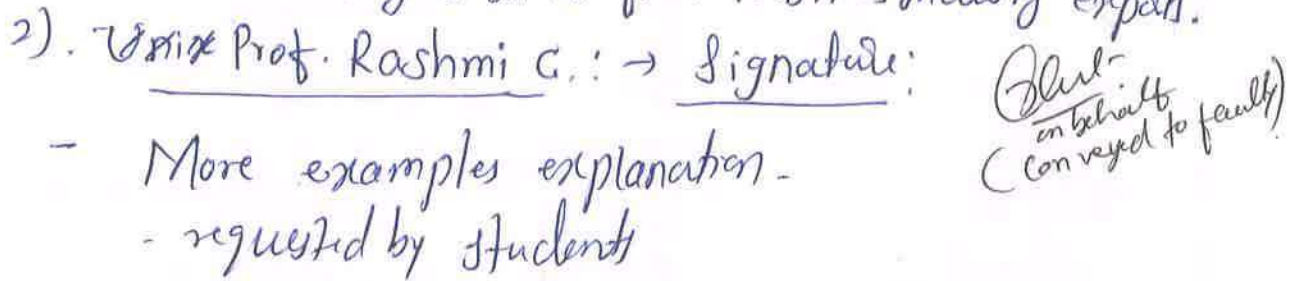 expan.
2). Unix Prof. Rashmi G. : → Signature:
on behalf
(Conveyed to faculty)
- More examples explanation -
- requested by students